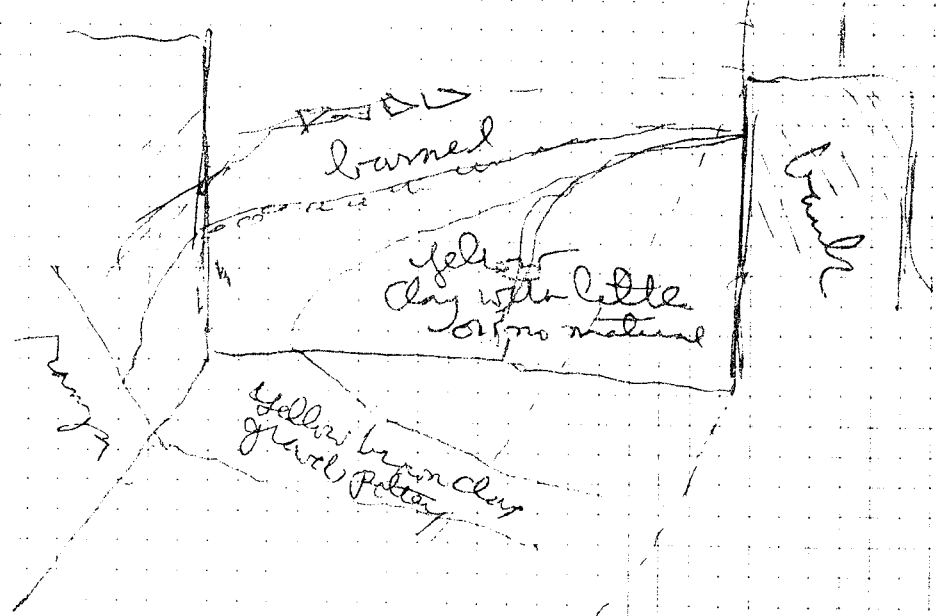 burned
yellow
clay with little
or no material
yellow brown clay
gravel, pottery